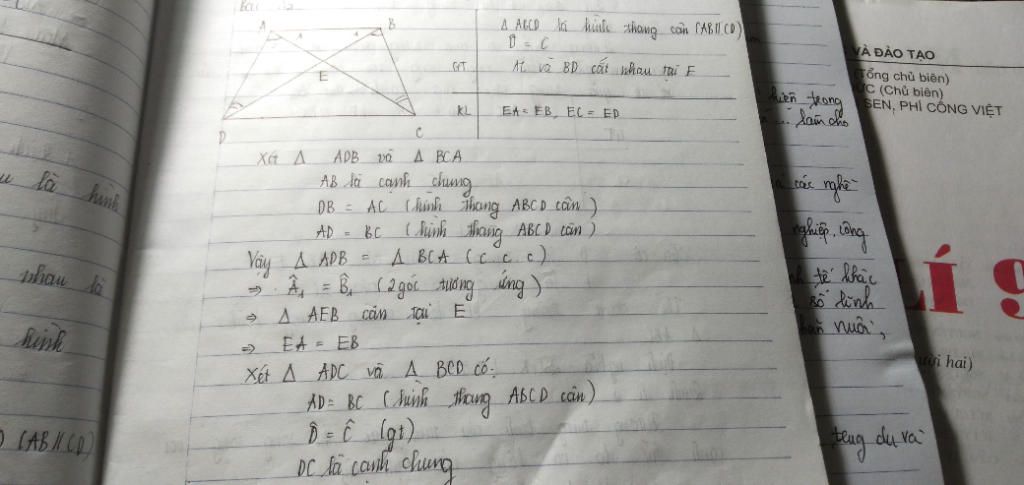 Bài
A
B
E
D
C
1
1
GT
KL
Δ ABCD là hình thang cân (AB//CD)
D̂ = C
AC và BD cắt nhau tại E
EA = EB, EC = ED
Xét Δ ADB và Δ BCA
AB là cạnh chung
DB = AC (hình thang ABCD cân)
AD = BC (hình thang ABCD cân)
Vậy Δ ADB = Δ BCA (c c c)
⇒ Â₁ = B̂₁ (2 góc tương ứng)
⇒ Δ AEB cân tại E
⇒ EA = EB
Xét Δ ADC và Δ BCD có:
AD = BC (hình thang ABCD cân)
D̂ = Ĉ (gt)
DC là cạnh chung
là hình
nhau là
hình
) (AB//CD)
hiện trong
làm cho
các nghề
nghiệp, công
tế khác
số lĩnh
chăn nuôi,
dụ và
VÀ ĐÀO TẠO
(Tổng chủ biên)
ỨC (Chủ biên)
SEN, PHÍ CÔNG VIỆT
LÍ 9
ười hai)